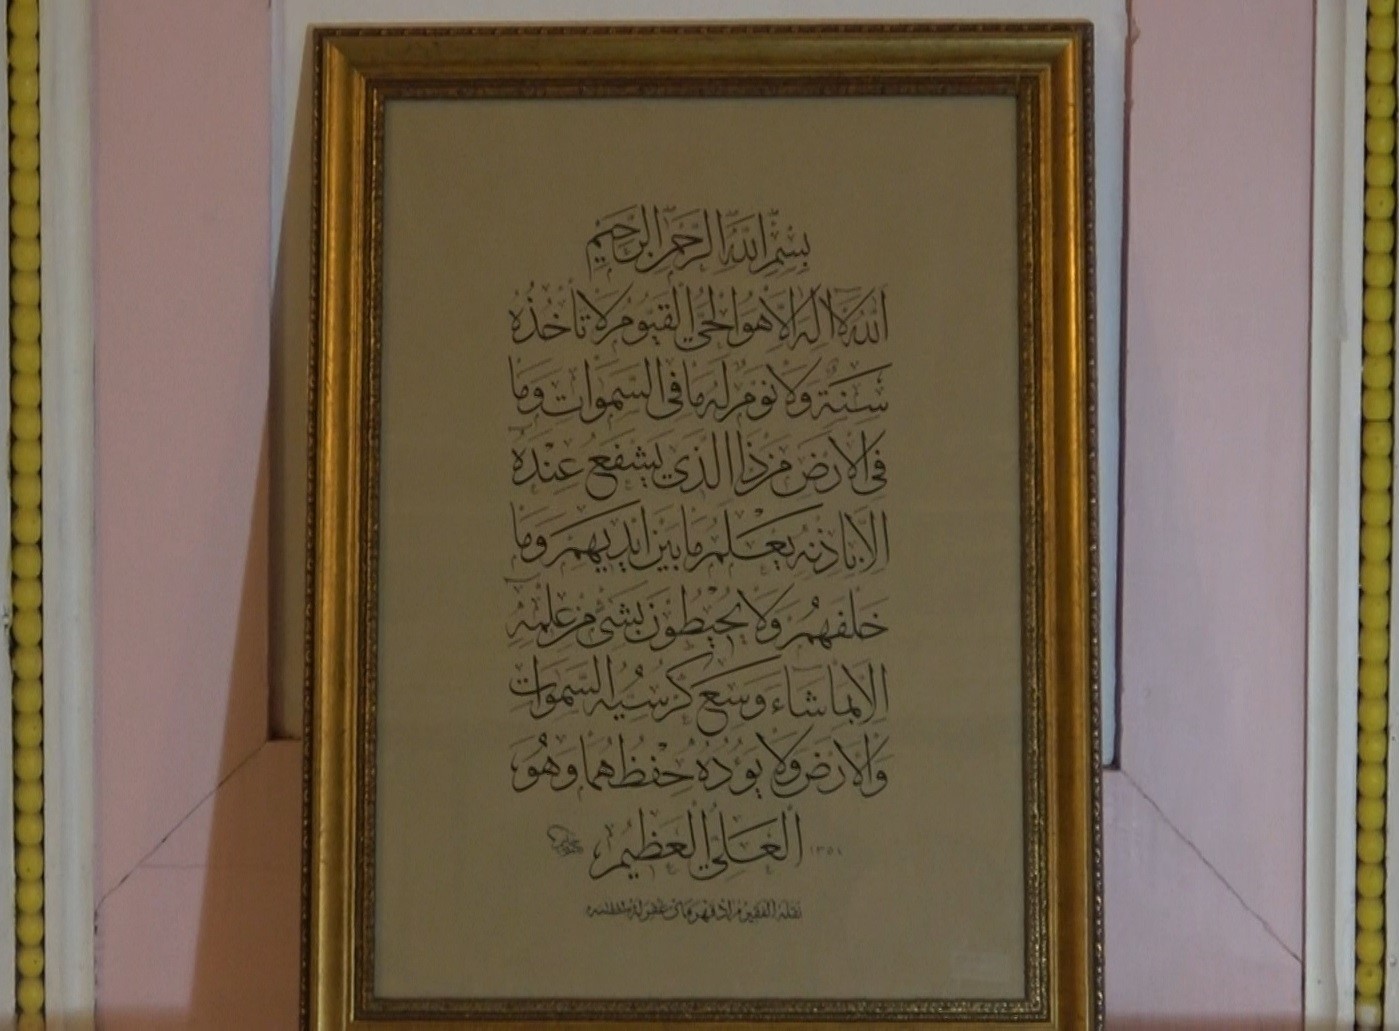 بِسْمِ اللّٰهِ الرَّحْمٰنِ الرَّحِيمِ
اَللّٰهُ لَا اِلٰهَ اِلَّا هُوَ الْحَيُّ الْقَيُّومُ لَا تَأْخُذُهُ
سِنَةٌ وَلَا نَوْمٌ لَهُ مَا فِى السَّمٰوَاتِ وَمَا
فِى الْاَرْضِ مَنْ ذَا الَّذِى يَشْفَعُ عِنْدَهُ
اِلَّا بِاِذْنِهِ يَعْلَمُ مَا بَيْنَ اَيْدِيهِمْ وَمَا
خَلْفَهُمْ وَلَا يُحِيطُونَ بِشَىْءٍ مِنْ عِلْمِهِ
اِلَّا بِمَا شَاءَ وَسِعَ كُرْسِيُّهُ السَّمٰوَاتِ
وَالْاَرْضَ وَلَا يَؤُدُهُ حِفْظُهُمَا وَهُوَ
الْعَلِىُّ الْعَظِيمُ ١٣٥٤
نقله الفقير قهرمان غفرله